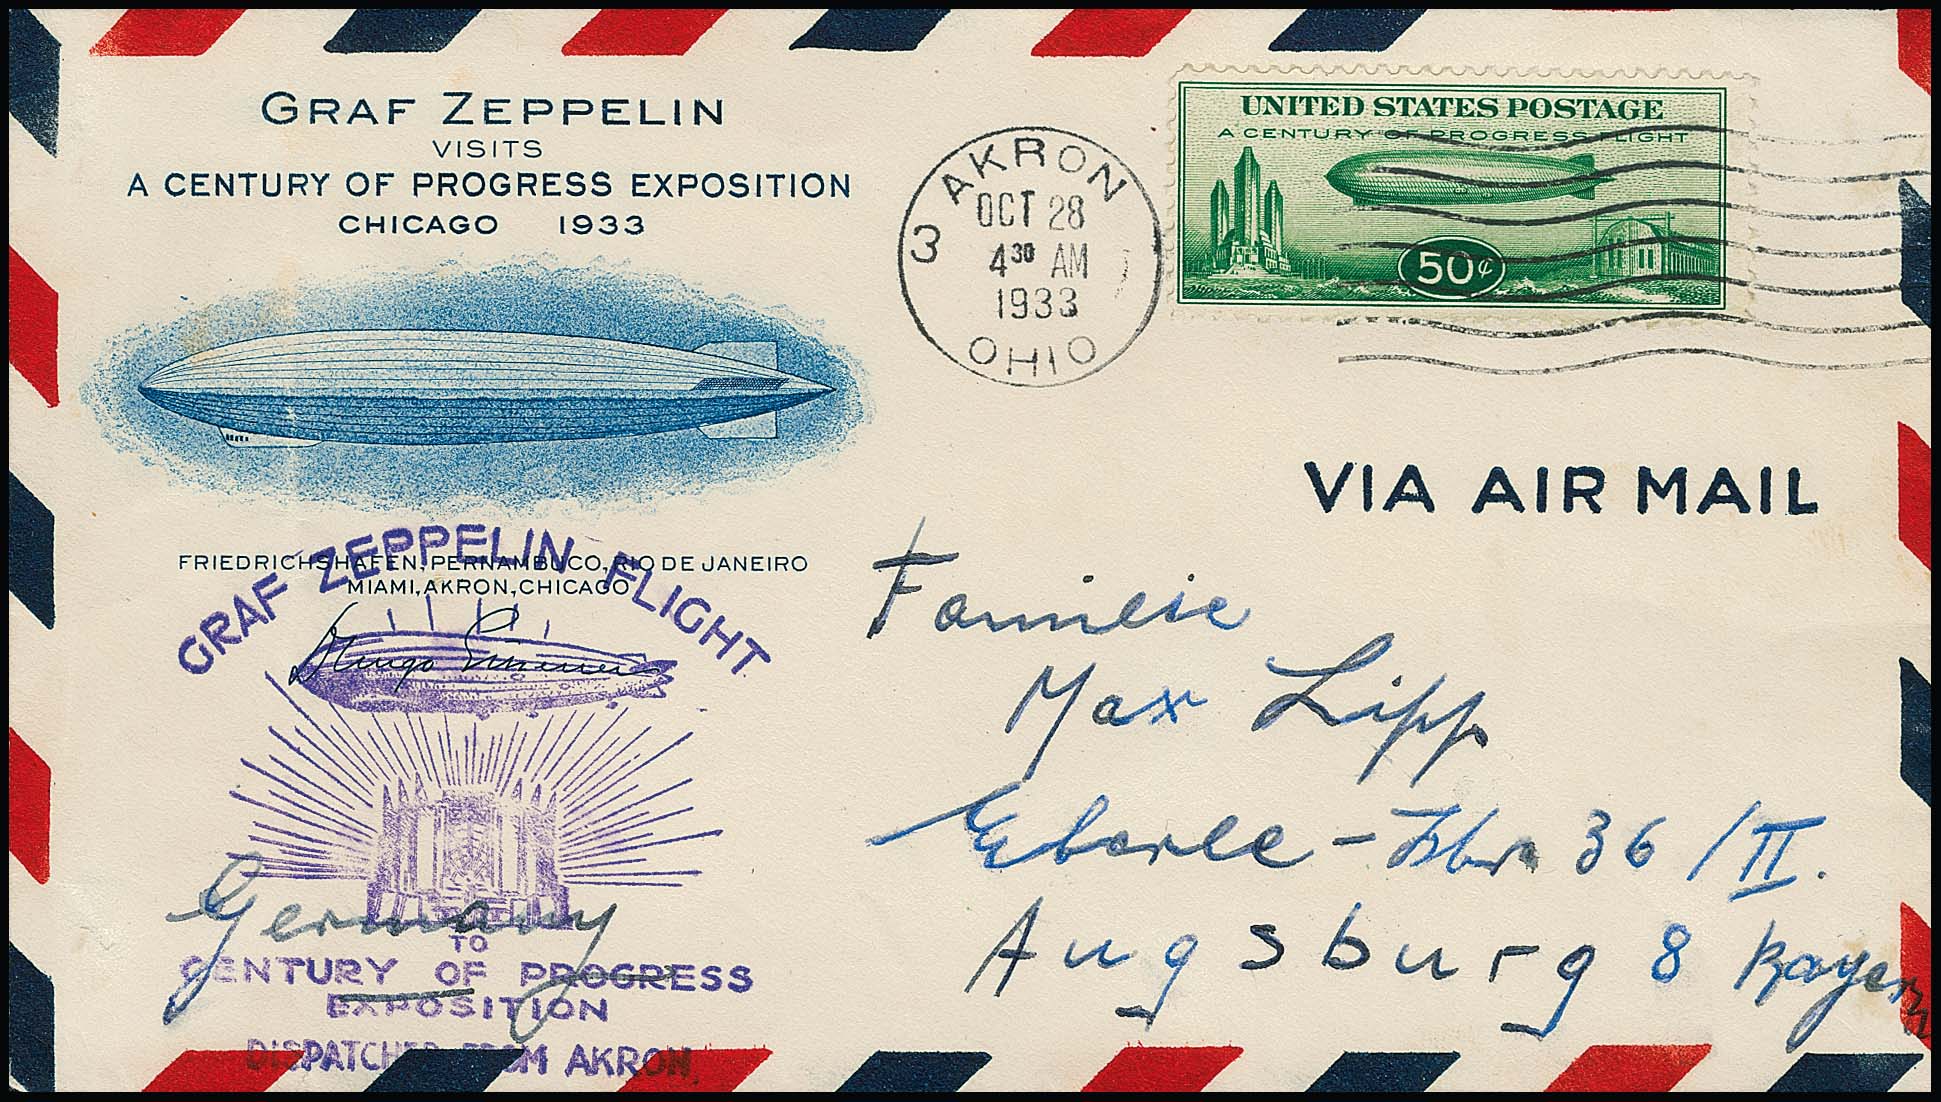 GRAF ZEPPELIN
VISITS
A CENTURY OF PROGRESS EXPOSITION
CHICAGO 1933
FRIEDRICHSHAFEN, PERNAMBUCO, RIO DE JANEIRO
MIAMI, AKRON, CHICAGO
GRAF ZEPPELIN FLIGHT
Hugo
TO
CENTURY OF PROGRESS
EXPOSITION
DISPATCHED FROM AKRON.
Germany
3 AKRON
OCT 28
4 30 AM
1933
OHIO
UNITED STATES POSTAGE
A CENTURY OF PROGRESS FLIGHT
50¢
VIA AIR MAIL
Familie
Max Lipp
Eberle - 36 / II.
Augsburg 8 Bayern